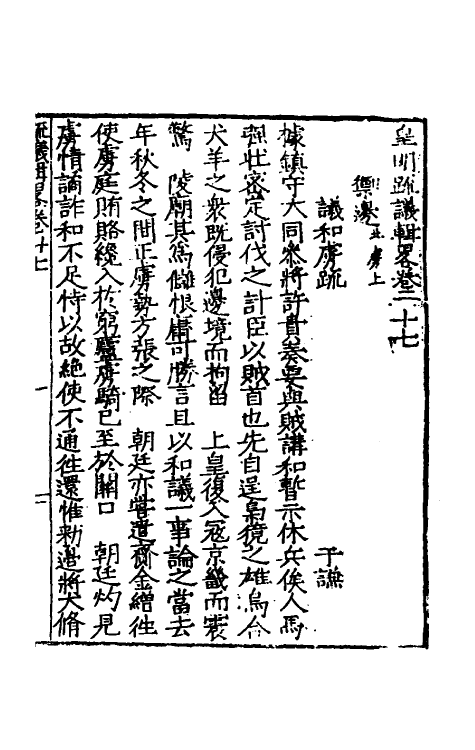 皇明疏議輯畧卷二十七
禦邊五 虜上
議和虜疏 于謙
據鎮守大同叅將許貴奏要與賊講和暫示休兵俟人馬
強壯密定討伐之計臣以賊首也先自逞梟獍之雄烏合
犬羊之衆既侵犯邊境而拘留 上皇復入冦京畿而震
驚 陵廟其爲讎恨庸可勝言且以和議一事論之當去
年秋冬之間正虜勢方張之際 朝廷亦嘗遣齎金繒徃
使虜庭賄賂纔入於窮廬虜騎已至於關口 朝廷灼見
虜情譎詐和不足恃以故絶使不通徃還惟勑邉將大脩
疏議輯畧卷廿七 一